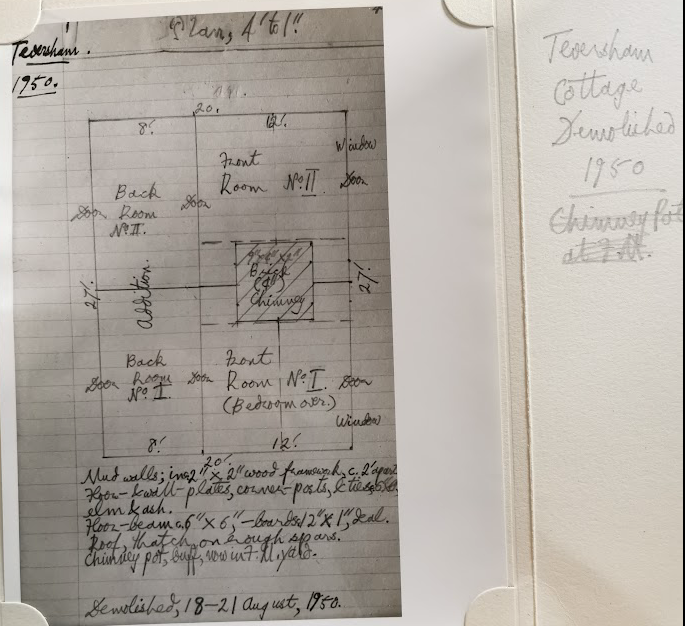 Plan, 4' to 1".
Teversham.
1950.
20.
8'.
12'.
Window
Front
Room No. II
Door
Back
Room
No. II.
Door
Door
Brick
Chimney
27'.
addition.
27'.
Back
Room
No. I.
Door
Door
Front
Room No. I
(Bedroom over.)
Door
Window
8'.
12'.
20'.
Mud walls; in 2" x 2" wood framework, c. 2' apart
Floor- & wall-plates, corner-posts, & ties,
elm & ash.
Floor-beams 6" x 6", -boards 12" x 1", deal.
Roof, thatch, on rough spars.
Chimney pot, buff, now in F.M. yard.
Demolished, 18-21 August, 1950.
Teversham
Cottage
Demolished
1950
Chimney Pot
at F.M.